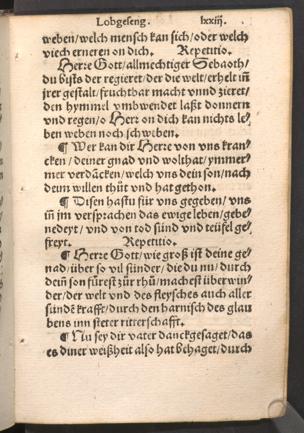 Lobgeseng. lxxiij.
weben/welch mensch kan sich/oder welch
viech erneren on dich. Repetitio.
Herre Gott/allmechtiger Sebaoth/
du bists der regieret/der die welt/erhelt iñ
jrer gestalt/fruchtbar macht vnnd zieret/
den hymmel vmbwendet laßt donnern
vnd regen/o Herr on dich kan nichts le/
ben weben noch schweben.
¶ Wer kan dir Herre von vns kran/
cken/deiner gnad vnd wolthat/ymmer/
mer verdäcken/welch vns dein son/nach
deim willen thüt vnd hat gethon.
¶ Disen hastu für vns gegeben/vns
iñ jm versprachen das ewige leben/gebe/
nedeyt/vnd von tod sünd vnd teüfel ge/
freyt. Repetitio.
¶ Herre Gott/wie groß ist deine ge/
nad/über so vil sünder/die du nu/durch
deiñ son fürest zür rhü/machest überwin/
der/der welt vnd des fleysches auch aller
sündē krafft/durch den harnisch des glau
bens inn steter ritterschafft.
¶ Nu sey dir vater danckgesaget/das
es diner weißheit also hat behaget/durch